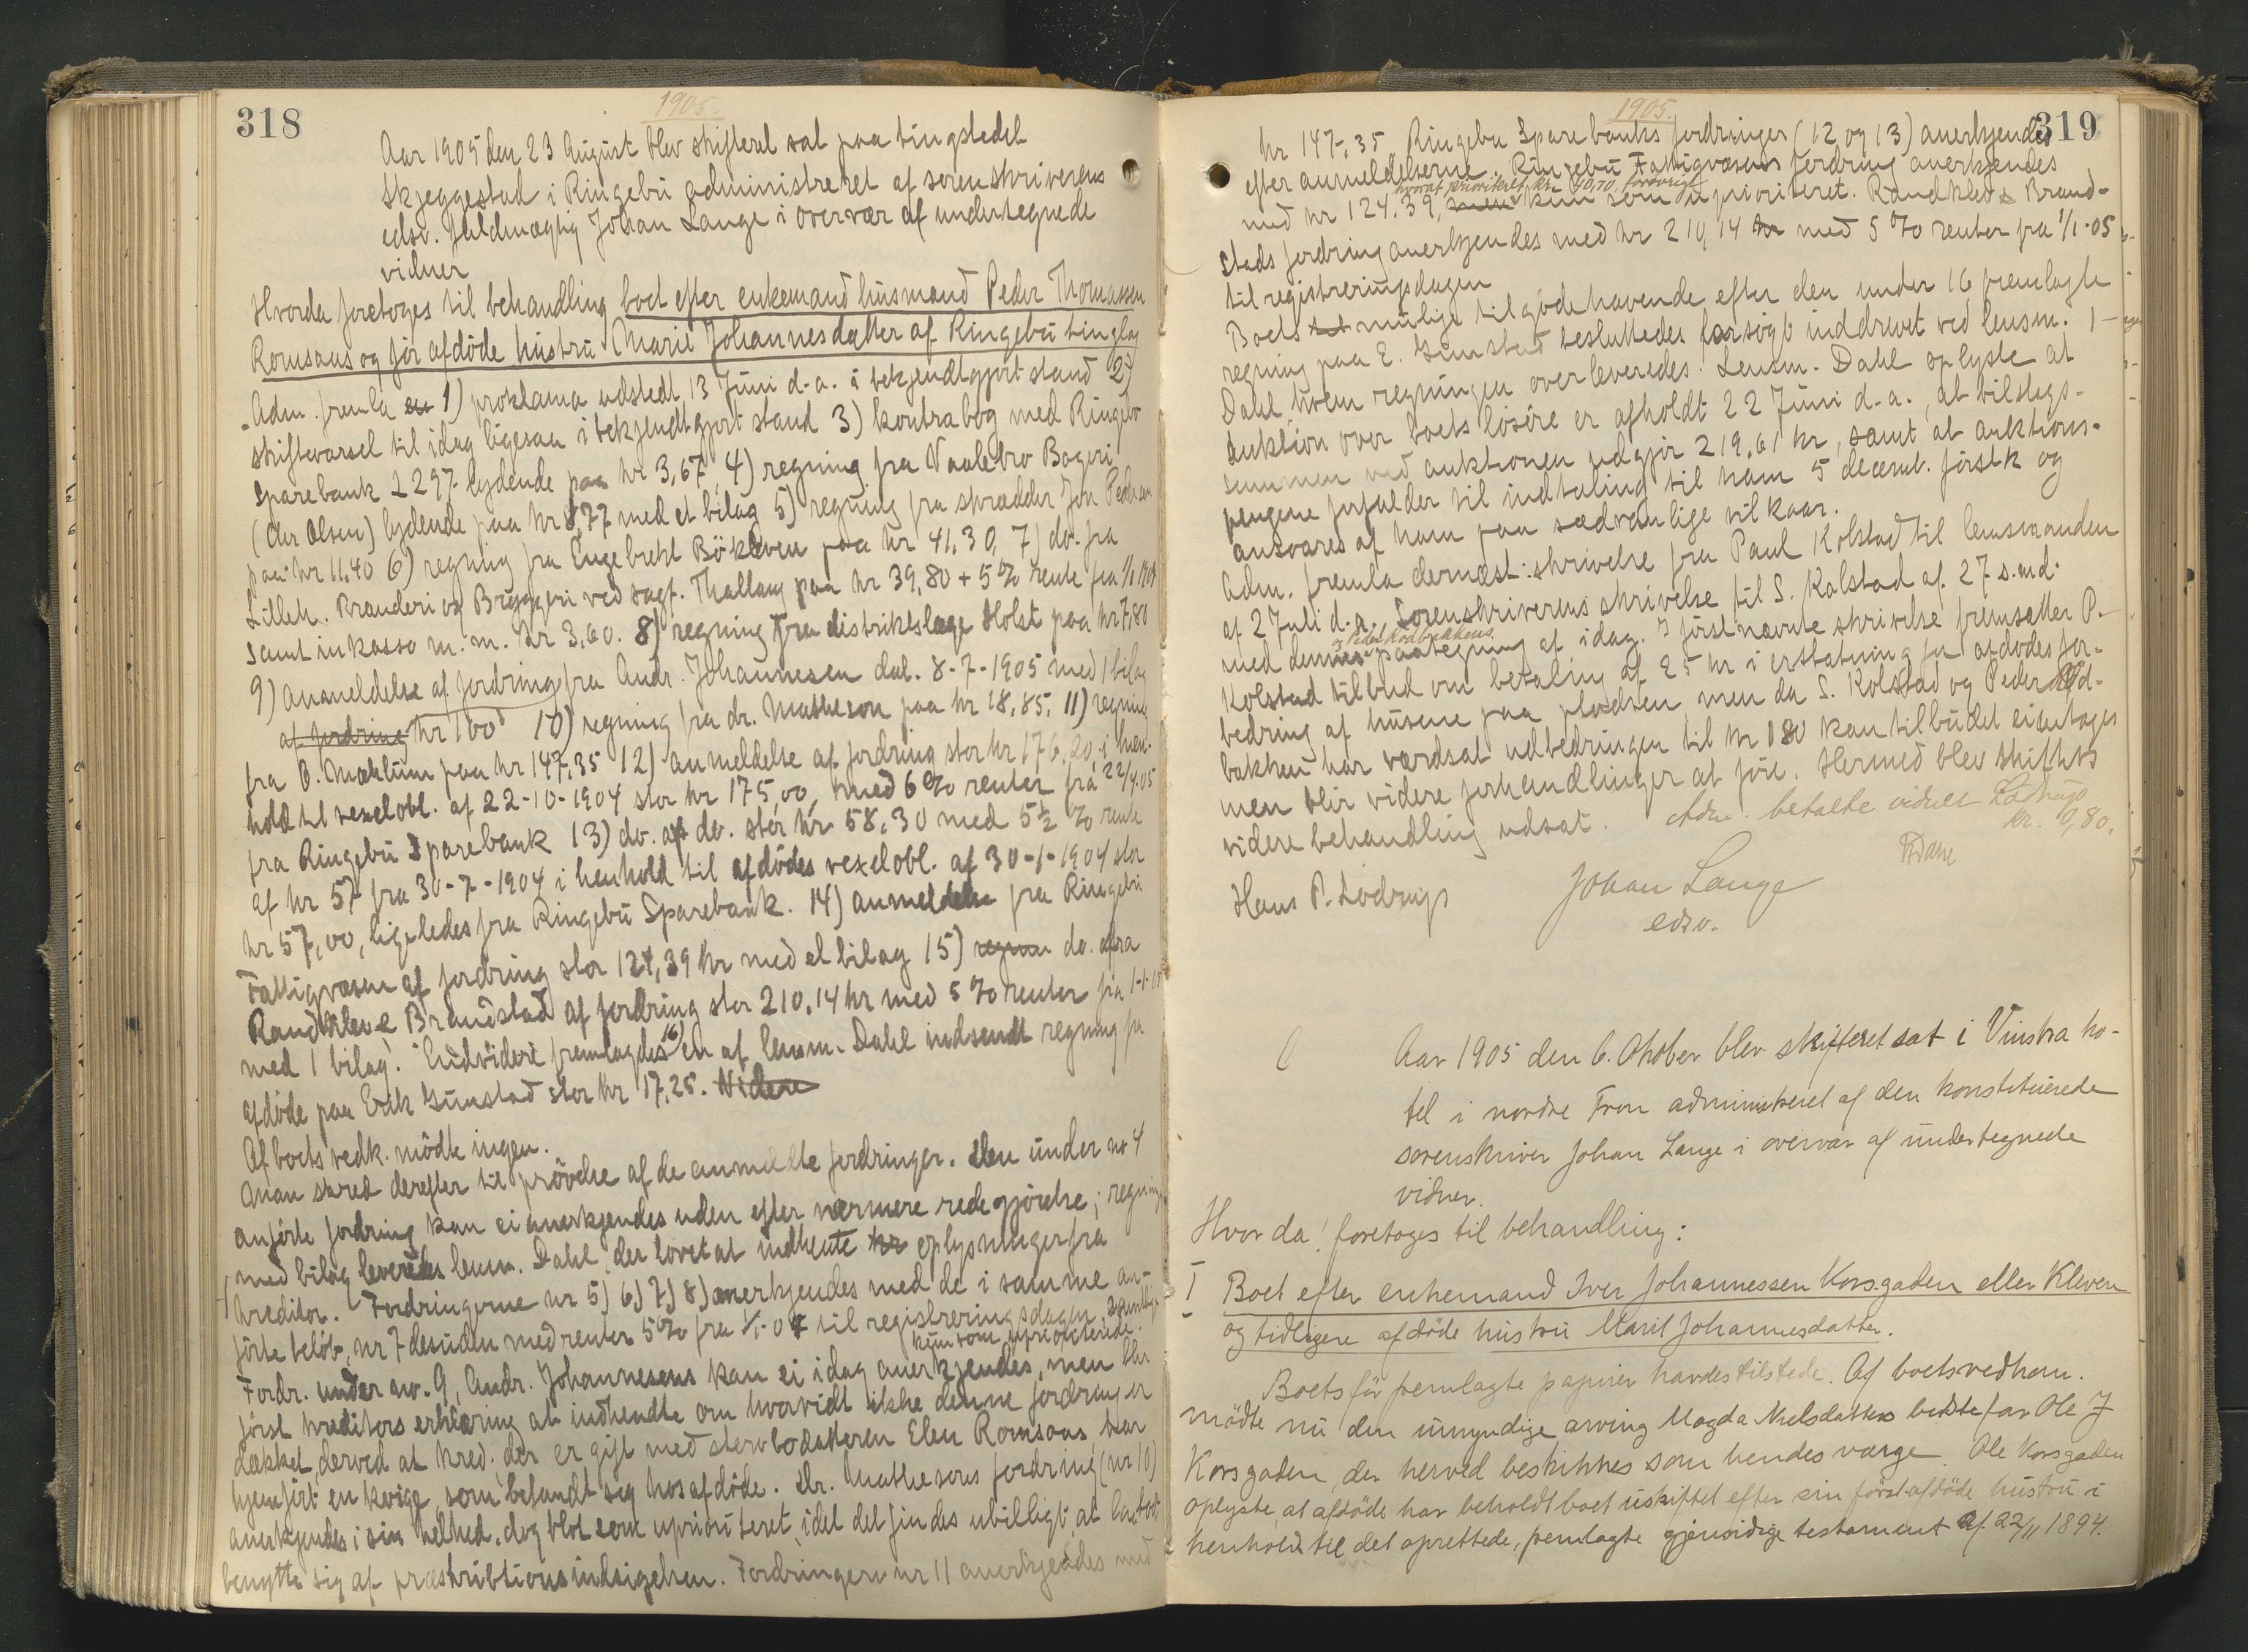 318
1905.
Aar 1905 den 23 August blev skifteret sat paa tingstedet
Skjeggestad i Ringebu administreret af sorenskriverens
edsv. fuldmægtig Johan Lange i overvær af undertegnede
vidner
Hvorda foretoges til behandling boet efter enkemand husmand Peder Thomassen
Romsaas og før afdöde hustru Marit Johannesdatter af Ringebu tinglag
Adm. fremla en 1) proklama udstedt 13 Juni d.a. i bekjendtgjort stand 2)
skiftevarsel til idag ligesaa i bekjendtgjort stand 3) kontrabog med Ringebu
Sparebank 2297 lydende paa kr 3,67, 4) regning fra Vaalebro Bageri
(Chr Olsen) lydende paa kr 8,77 med et bilag 5) regning fra skrædder Jon Pedersen
paa kr 11.40 6) regning fra Engebrekt Bökleven paa kr 41,30, 7) do. fra
Lilleh. Brænderi og Bryggeri ved sagf. Thallaug paa kr 39,80 + 5% rente fra 1/1 1904
samt inkasso m.m. kr 3,60. 8) regning fra distriktslæge Holst paa kr 7,80
9) anmeldelse af fordring fra Andr. Johannesen dat. 8-7-1905 med 1 bilag
af fordring kr 100 10) regning fra dr. Matheson paa kr 18,85, 11) regning
fra O. Mæhlum paa kr 147,35 12) anmeldelse af fordring stor kr 176,20, i hen-
hold til vexelobl. af 22-10-1904 stor kr 175,00, med 6% renter fra 22/4.05
fra Ringebu Sparebank 13) do. af do. stor kr 58,30 med 5½ % rente
af kr 57 fra 30-7-1904 i henhold til afdödes vexelobl. af 30-1-1904 stor
kr 57,00, ligeledes fra Ringebu Sparebank. 14) anmeldelse fra Ringebu
Fattigvæsen af fordring stor 124,39 kr med et bilag 15) regnin do. fra
Randkleve Brandstad af fordring stor 210,14 kr med 5 % renter fra 1-1-05
med 1 bilag. Endvidere fremlagdes 16) en af lensm. Dahl indsendt regning fra
afdöde paa Erik Gunstad stor kr 17,25. Videre
Af boets vedk. mödte ingen.
Man skred derefter til prövelse af de anmeldte fordringer. Den under nr 4
anförte fordring kan ei anerkjendes uden efter nærmere redegjörelse; regning
med bilag leveredes lensm. Dahl, der lovet at indhente kr oplysninger fra
kreditor. Fordringerne nr 5) 6) 7) 8) anerkjendes med de i samme an-
förte belöb, nr 7 desuden med renter 5% fra 1/1-04 til registreringsdagen, samtlige
kun som uprioriterede.
Fordr. under no. 9, Andr. Johannesens kan ei idag anerkjendes, men blir
först kreditors erklæring at indhendte om hvorvidt ikke denne fordring er
dækket derved at kred. der er gift med stervbodatteren Elen Romsaas, har
hjemfört en kvige, som befandt sig hos afdöde. Dr. Mathesons fordring (nr 10)
anerkjendes i sin helhed, dog blot som uprioriteret, idet det findes ubilligt at la boet
benytte sig af præskribtionsindsigelsen. Fordringen nr 11 anerkjendes med
319
1905.
kr 147,35. Ringebu Sparebanks fordringer (12 og 13) anerkjendes
efter anmeldelserne. Ringebu Fattigvæsens fordring anerkjendes
hvoraf prioritert kr. 70,70, forövrigt
med kr 124.39, men kun som uprioriteret. Randkleve Brand-
stads fordring anerkjendes med kr 210,14 kr med 5 % renter fra 1/1-05
til registreringsdagen
Boets mulige tilgodehavende efter den under 16 fremlagte
regning paa E. Gunstad besluttedes forsøgt inddrevet ved lensm.
Dahl, hvem regningen overleveredes. Lensm. Dahl oplyste at
auktion over boets lösöre er afholdt 22 Juni d.a., at tilslags-
summen ved auktionen udgjør 219,61 kr, samt at auktions-
pengene forfalder til indtaling til ham 5 decemb. förstk og
ansvares af ham paa sædvanlige vilkaar.
Adm. fremla dernæst: skrivelse fra Paul Kolstad til lensmanden
af 2 Juli d.a., Sorenskriverens skrivelse til S. Kolstad af 27 s.md.
og Peder Rödbakkens
med dennes paategning af idag. I förstnævnte skrivelse fremsætter P.
Kolstad tilbud om betaling af 25 kr i erstatning for afdödes for-
bedring af husene paa pladsen men da S. Kolstad og Peder Röd-
bakken har værdsat udbedringen til kr 180 kan tilbudet ei mtages
men blir videre forhandlinger at före. Hermed blev skiftets
videre behandling udsat. Adm. betalte vidnet Lodrup
kr. 0,80.
Hans P. Lodrup
Johan Lange
edsv.
Aar 1905 den 6. Oktober blev skifteret sat i Vinstra ho-
tel i nordre Fron administreret af den konstituerede
sorenskriver Johan Lange i overvær af undertegnede
vidner.
Hvor da foretoges til behandling:
I Boet efter enkemand Iver Johannessen Korsgaden eller Kleven
og tidligere afdöde hustru Marit Johannesdatter.
Boets för fremlagte papirer havdes tilstede. Af boets vedkom.
mödte nu den umyndige arving Magda Nielsdatters bedstefar Ole J
Korsgaden, der herved beskikkes som hendes værge. Ole Korsgaden
oplyste, at afdöde har beholdt boet uskiftet efter sin först afdöde hustru i
henhold til det oprettede, fremlagte gjensidige testament af 22/11 1894.